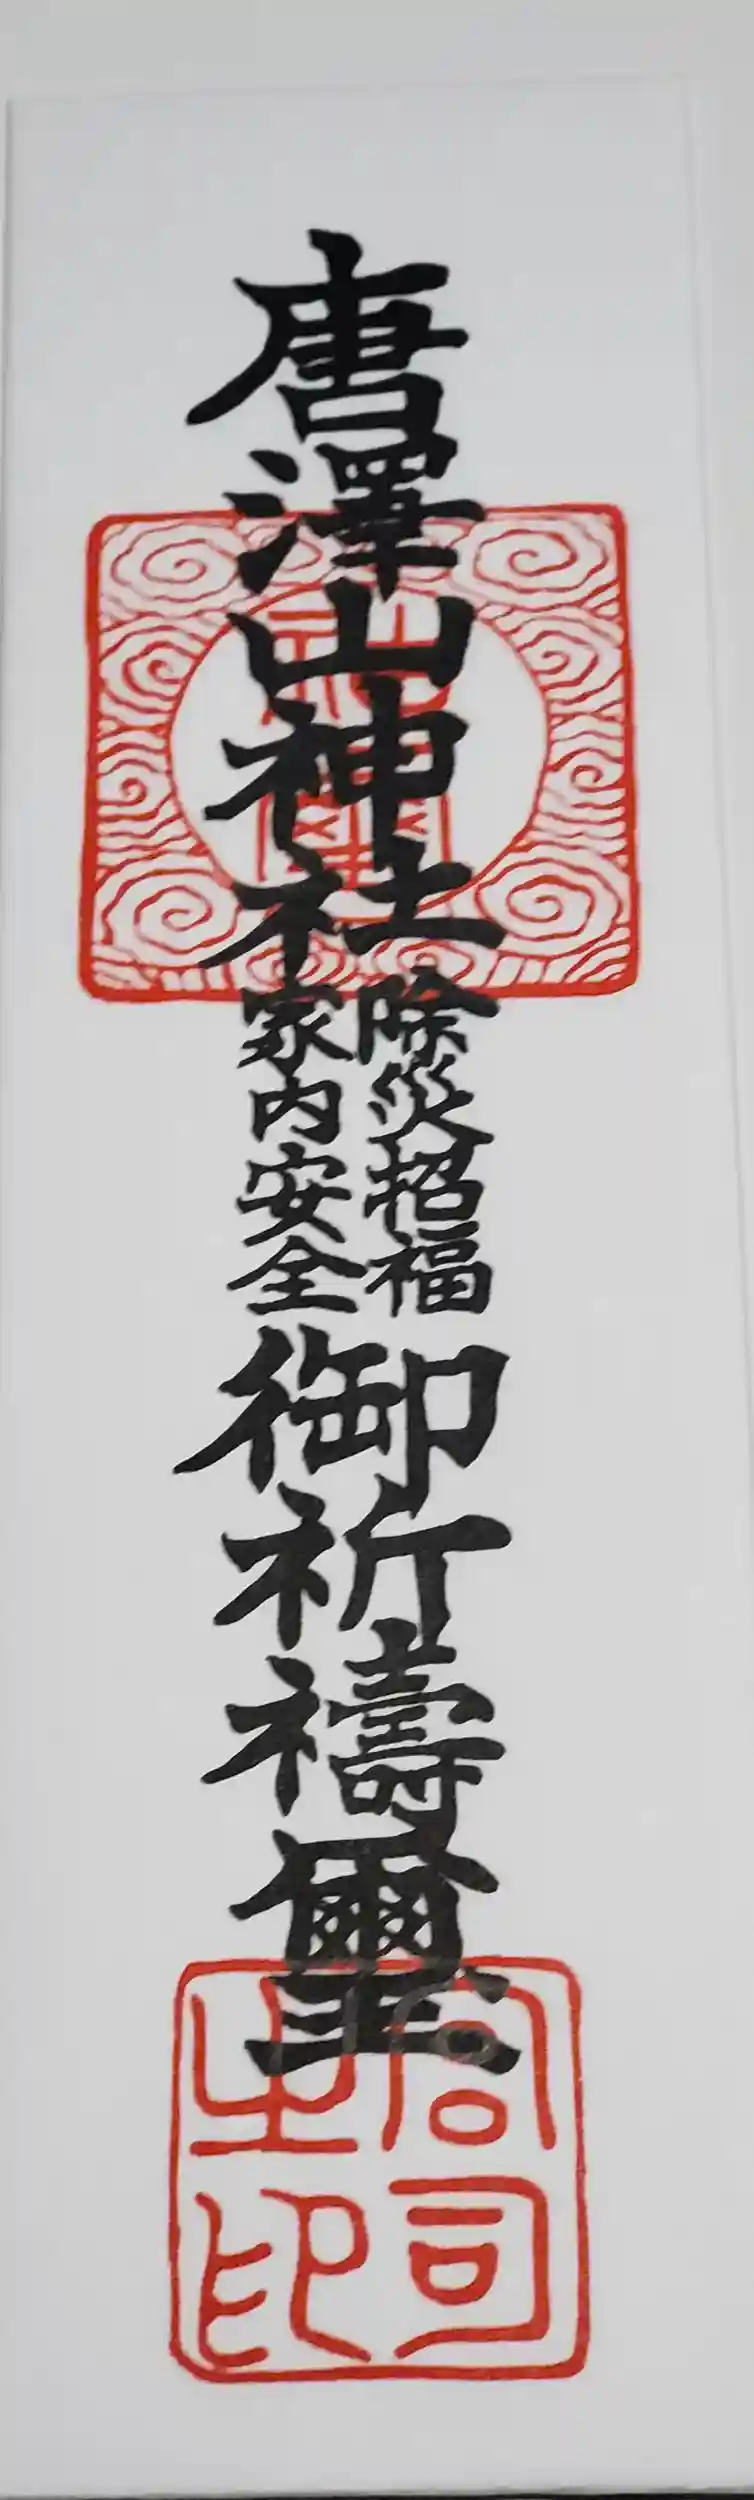 唐澤山神社
除災招福
家内安全
御祈禱璽
宮司之印